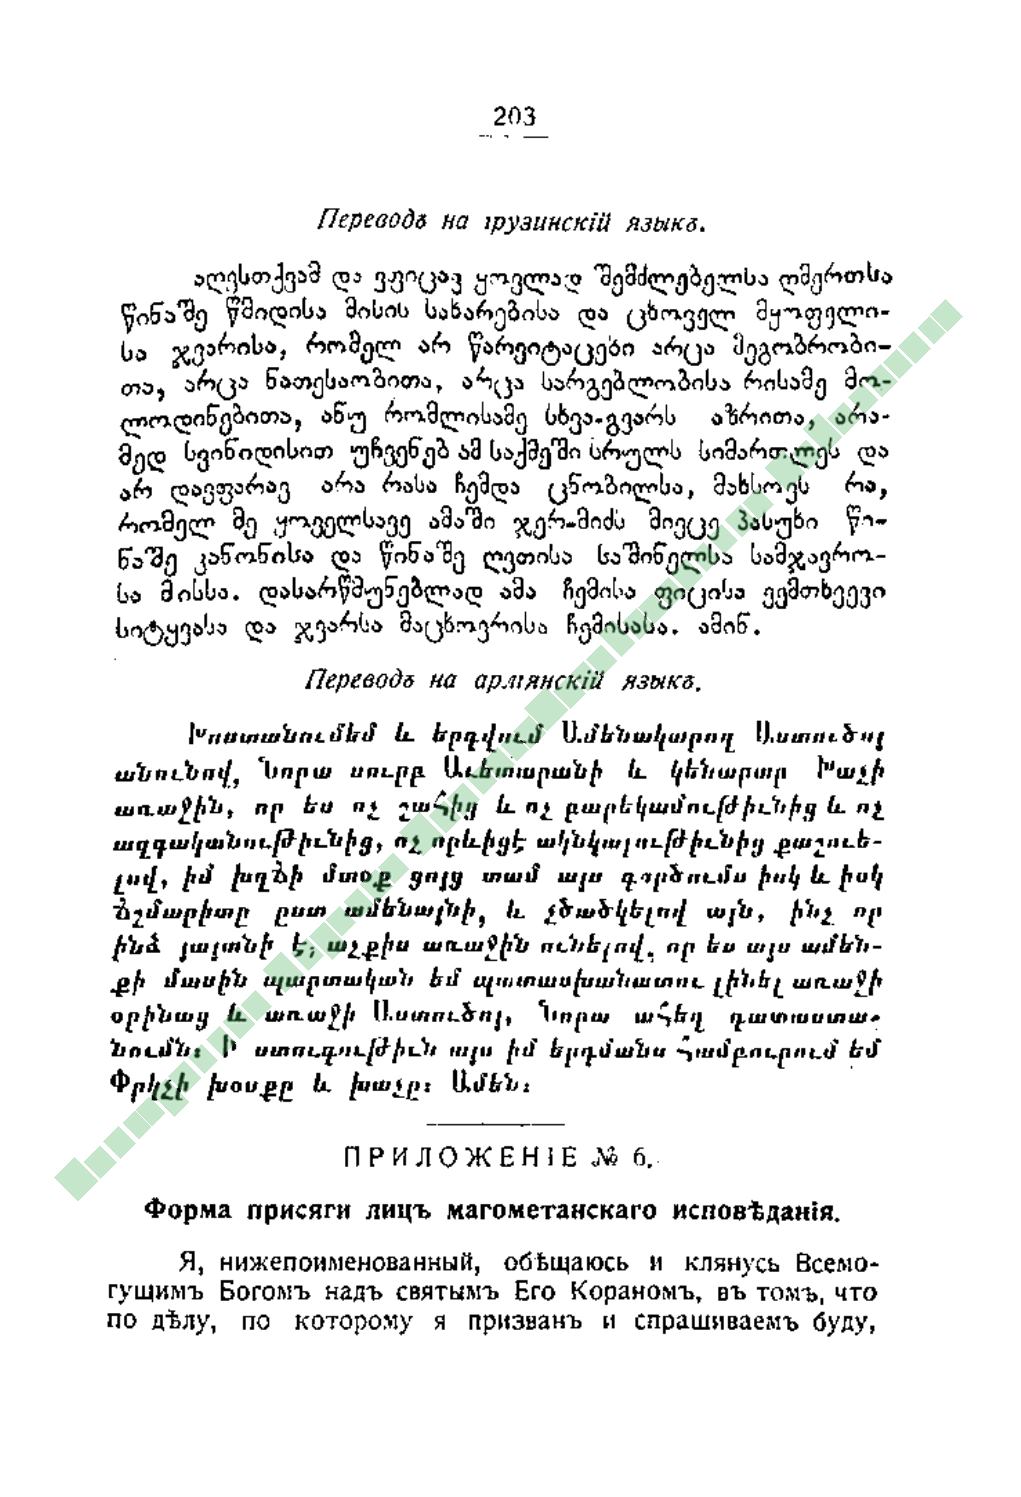 203
Переводъ на грузинскій языкъ.
აღვსთქვამ და ვჶიცავ ყოვლად შემძლებელსა ღმერთსა
წინაშე წმიდისა მისის სახარებისა და ცხოველ მყოფელი-
სა ჯვარისა, რომელ არ წარვიტაცები არცა მეგობრობი-
თა, არცა ნათესაობითა, არცა სარგებლობისა რისამე მო-
ლოდინებითა, ანუ რომლისამე სხვა-გვარს აზრითა, არა-
მედ სვინიდისით უჩვენებ ამ საქმეში სრულს სიმართლეს და
არ დავფარავ არა რასა ჩემდა ცნობილსა, მახსოვს რა,
რომელ მე ყოველსავე ამაში ჯერ-მიძს მივცე პასუხი წი-
ნაშე კანონისა და წინაშე ღვთისა საშინელსა სამჯავრო-
სა მისსა. დასარწმუნებლად ამა ჩემისა ფიცისა ვემთხვევი
სიტყვასა და ჯვარსა მაცხოვრისა ჩემისასა. ამინ.
Переводъ на армянскій языкъ.
Խոստանումեմ և երդվում Ամենակարող Աստուծոյ
անունով, Նորա սուրբ Աւետարանի և կենարար Խաչի
առաջին, որ ես ոչ շահից և ոչ բարեկամութիւնից և ոչ
ազգականութիւնից, ոչ որևիցէ ակնկալութիւնից քաշուե-
լով, իմ խղճի մտօք ցոյց տամ այս գործումս իսկ և իսկ
ճշմարիտը ըստ ամենայնի, և չծածկելով այն, ինչ որ
ինձ յայտնի է, աչքիս առաջին ունելով, որ ես այս ամեն-
քի մասին պարտական եմ պատասխանատու լինել առաջի
օրինաց և առաջի Աստուծոյ, Նորա ահեղ դատաստա-
նումն: Ի ստուգութիւն այս իմ երդմանս համբուրում եմ
Փրկչի խօսքը և խաչը: Ամեն:
ПРИЛОЖЕНІЕ № 6.
Форма присяги лицъ магометанскаго исповѣданія.
Я, нижепоименованный, обѣщаюсь и клянусь Всемо-
гущимъ Богомъ надъ святымъ Его Кораномъ, въ томъ, что
по дѣлу, по которому я призванъ и спрашиваемъ буду,